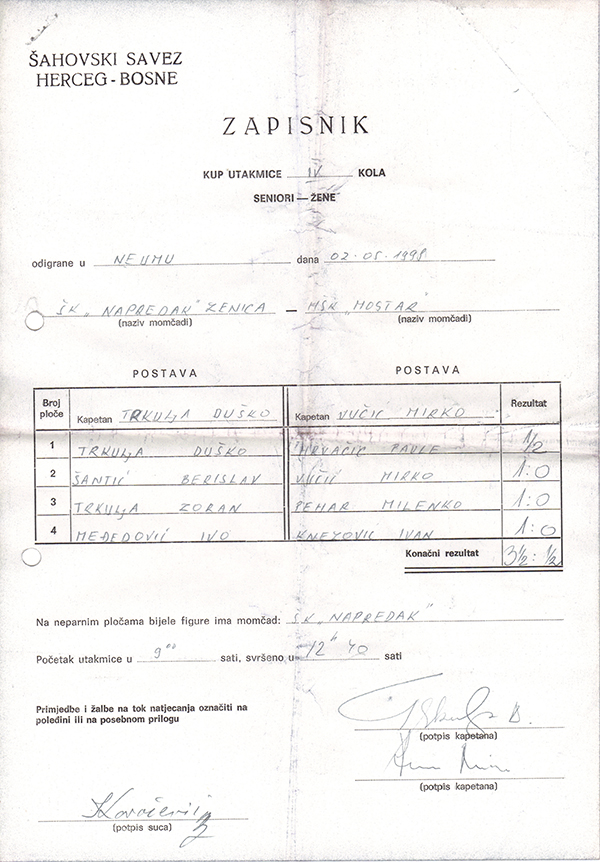 ŠAHOVSKI SAVEZ
HERCEG - BOSNE
ZAPISNIK
KUP UTAKMICE IV KOLA
SENIORI — ŽENE
odigrane u NEUMU dana 02.05.1998
ŠK „NAPREDAK" ZENICA — MŠK „MOSTAR"
(naziv momčadi) (naziv momčadi)
POSTAVA POSTAVA
Broj ploče Kapetan TRKULJA DUŠKO Kapetan VUČIĆ MIRKO Rezultat
1 TRKULJA DUŠKO HRVAČIĆ PAVLE 1/2
2 ŠANTIĆ BERISLAV VUČIĆ MIRKO 1:0
3 TRKULJA ZORAN PEHAR MILENKO 1:0
4 MEĐEDOVIĆ IVO KNEZOVIC IVAN 1:0
Konačni rezultat 3 1/2 : 1/2
Na neparnim pločama bijele figure ima momčad: ŠK „NAPREDAK"
Početak utakmice u 9⁰⁰ sati, svršeno u 12 40 sati
Primjedbe i žalbe na tok natjecanja označiti na
poleđini ili na posebnom prilogu
(potpis kapetana)
(potpis kapetana)
(potpis suca)